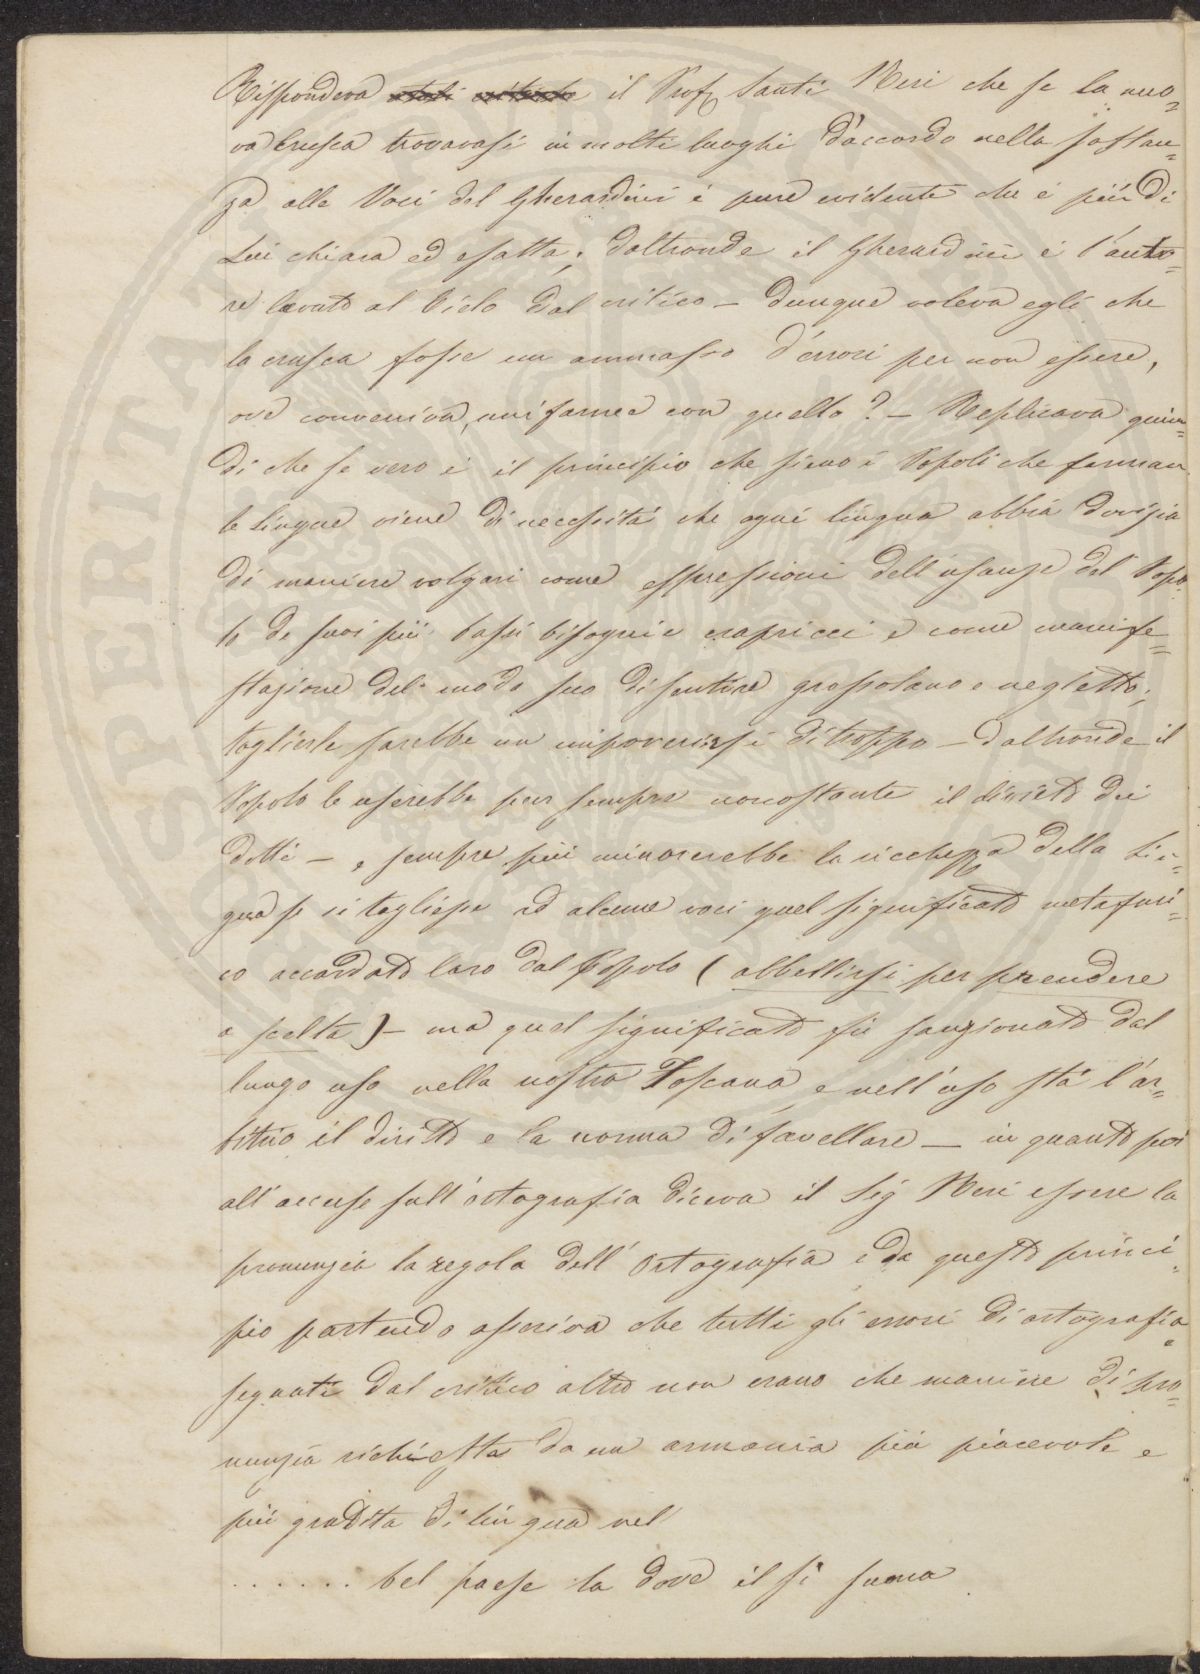 Rispondeva il Prof. Santi Neri che se la nuo=
va Crusca trovavasi in molti luoghi d'accordo nella sostan=
za alle Voci del Gherardini è pure evidente che è più di
Lui chiara ed esatta; daltronde il Gherardini è l'auto=
re levato al Cielo dal critico — dunque voleva egli che
la crusca fosse un ammasso d'errori per non essere,
ove conveniva, uniforme con quello? — Replicava quin=
di che se vero è il principio che sieno i Popoli che forman
le Lingue viene di necessità che ogni lingua abbia dovizia
di maniere volgari come espressioni dell'usanze del Popo
lo de suoi più bassi bisogni e capricci e come manife=
stazione del modo suo di sentire grossolano e negletto;
toglierle sarebbe un impoverirsi di troppo — daltronde il
Popolo le userebbe pur sempre nonostante il divieto dei
dotti — e sempre più minorerebbe la ricchezza della Lin=
gua se si togliesse ad alcune voci quel significato metafori=
co accordato loro dal Popolo ( abbellirsi per prendere
a scelta ) — ma quel significato fu sanzionato dal
lungo uso nella nostra Toscana e nell'uso stà l'ar=
bitrio il diritto e la norma di favellare — in quanto poi
all'accuse sull'ortografia diceva il Sig Neri essere la
pronunzia la regola dell'Ortografia e da questo princi=
pio partendo asseriva che tutti gli errori di ortografia
segnati dal critico altro non erano che maniere di pro=
nunzia richiesta da un armonia più piacevole e
più gradita di lingua nel
. . . . . . bel paese la dove il si suona